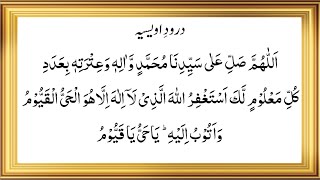 درودِ اویسیہ
اَللّٰهُمَّ صَلِّ عَلٰی سَیِّدِنَا مُحَمَّدٍ وَّاٰلِهٖ وَعِتْرَتِهٖ بِعَدَدِ
كُلِّ مَعْلُوْمٍ لَّكَ اَسْتَغْفِرُ اللّٰهَ الَّذِیْ لَآ اِلٰهَ اِلَّا هُوَ الْحَیُّ الْقَیُّوْمُ
وَاَتُوْبُ اِلَیْهِ ؕ یَاحَیُّ یَا قَیُّوْمُ